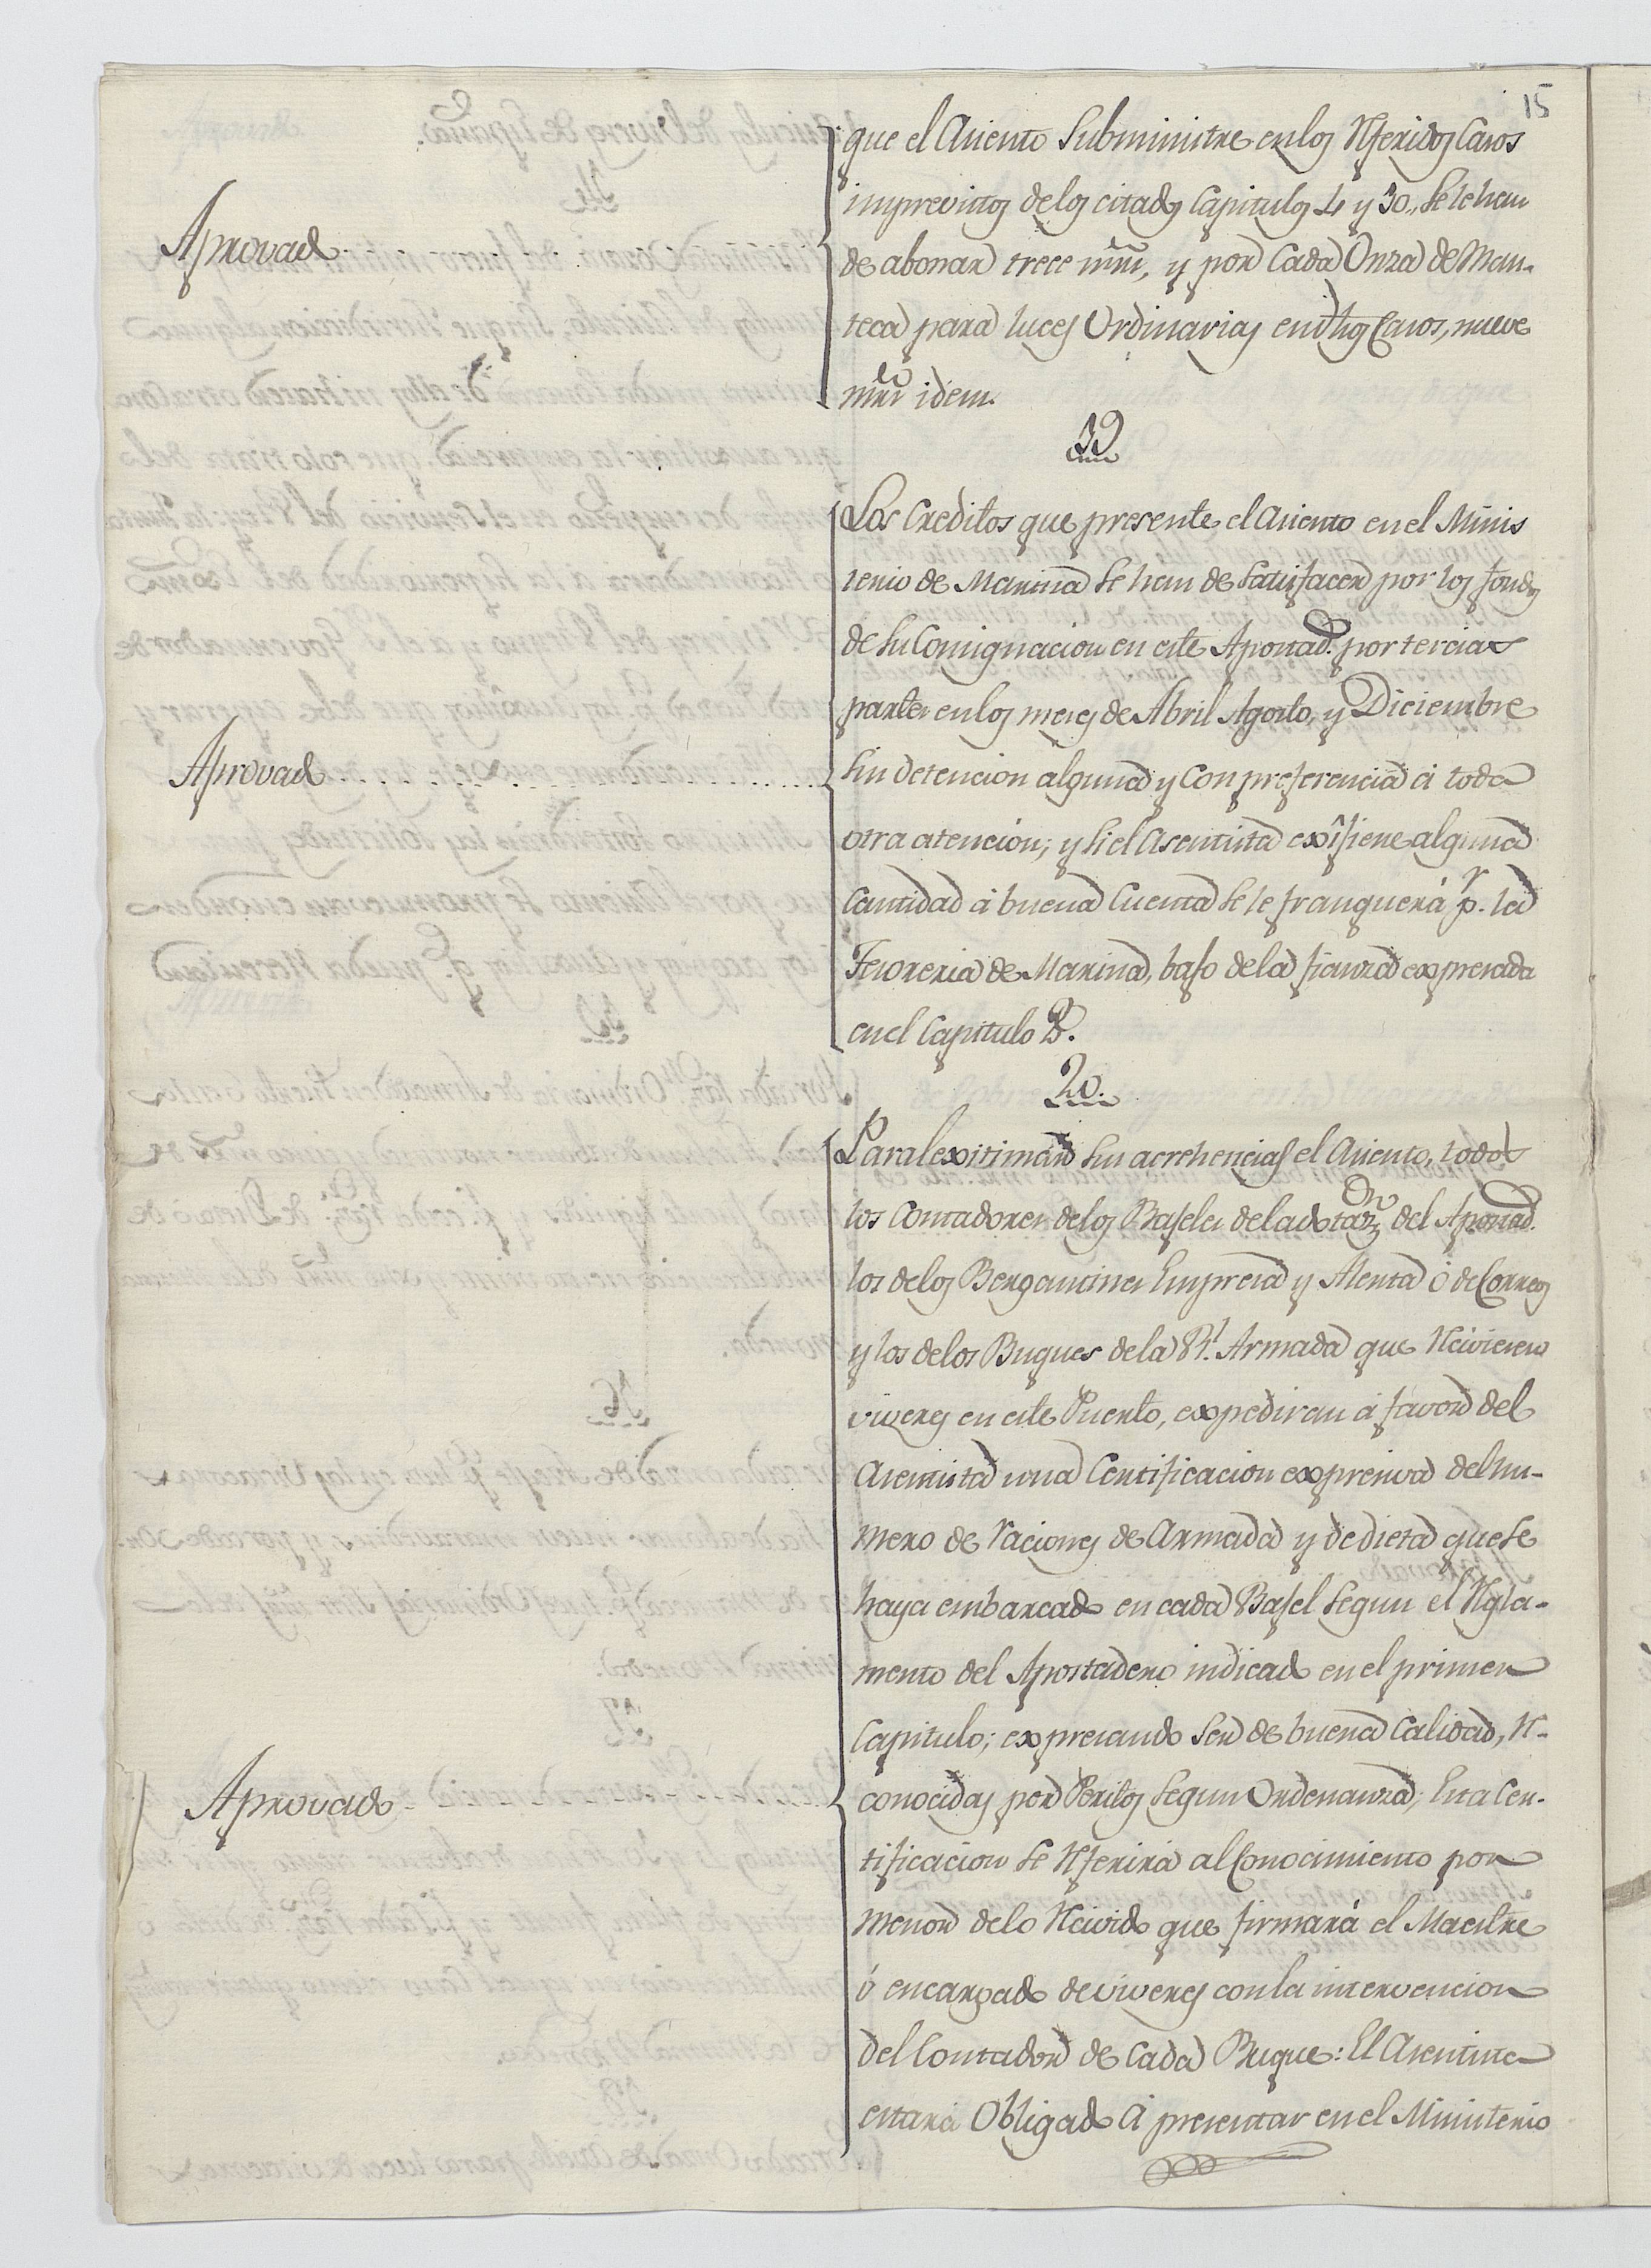 15
que el Asiento Subministre en los Rferidos Casos
imprevistos de los citados Capitulos 4 y 30., Se le han
Aprovado
de abonar trece mrs, y por Cada Onza de Man-
teca para luces Ordinarias en dhos Casos, nueve
mrs idem.
19
Los Creditos que presente el Asiento en el Minis
terio de Marina Se han de Satisfacer por los fondos
de Su Consignacion en este Apostado. por tercias
partes en los meses de Abril Agosto, y Diciembre
Aprovado
Sin detencion alguna y Con preferencia á toda
otra atencion; y Si el Asentista exîsiene alguna
Cantidad á buena Cuenta Se le franquerá pr. la
Tesoreria de Marina, bajo de la fianza expresada
en el Capitulo
20.
Para lexitimar Sus acrehencias el Asiento, todos
los Contadores de los Bajeles de la dotazon del Apostado.
los de los Bergantines Empresa y Alenta ó de Correos
y los de los Buques de la Rl. Armada que Rcivieren
viveres en este Puerto, expediran á favor del
Asentista una Certificacion expresiva del nu-
mero de raciones de Armada y de dieta que se
haya embarcado en cada Bajel Segun el Rgla-
mento del Apostadero indicado en el primer
Capitulo; expresando Ser de buena Calidad, R-
Aprovado
conocidas por Peritos Segun Ordenanza; Esta Cer-
tificacion Se Rferirá al Conocimiento por
menor de lo Rcivido que firmará el Maestre
ó encargado de viveres con la intervencion
del Contador de Cada Buque: El Asentista
estará Obligado á presentar en el Ministerio